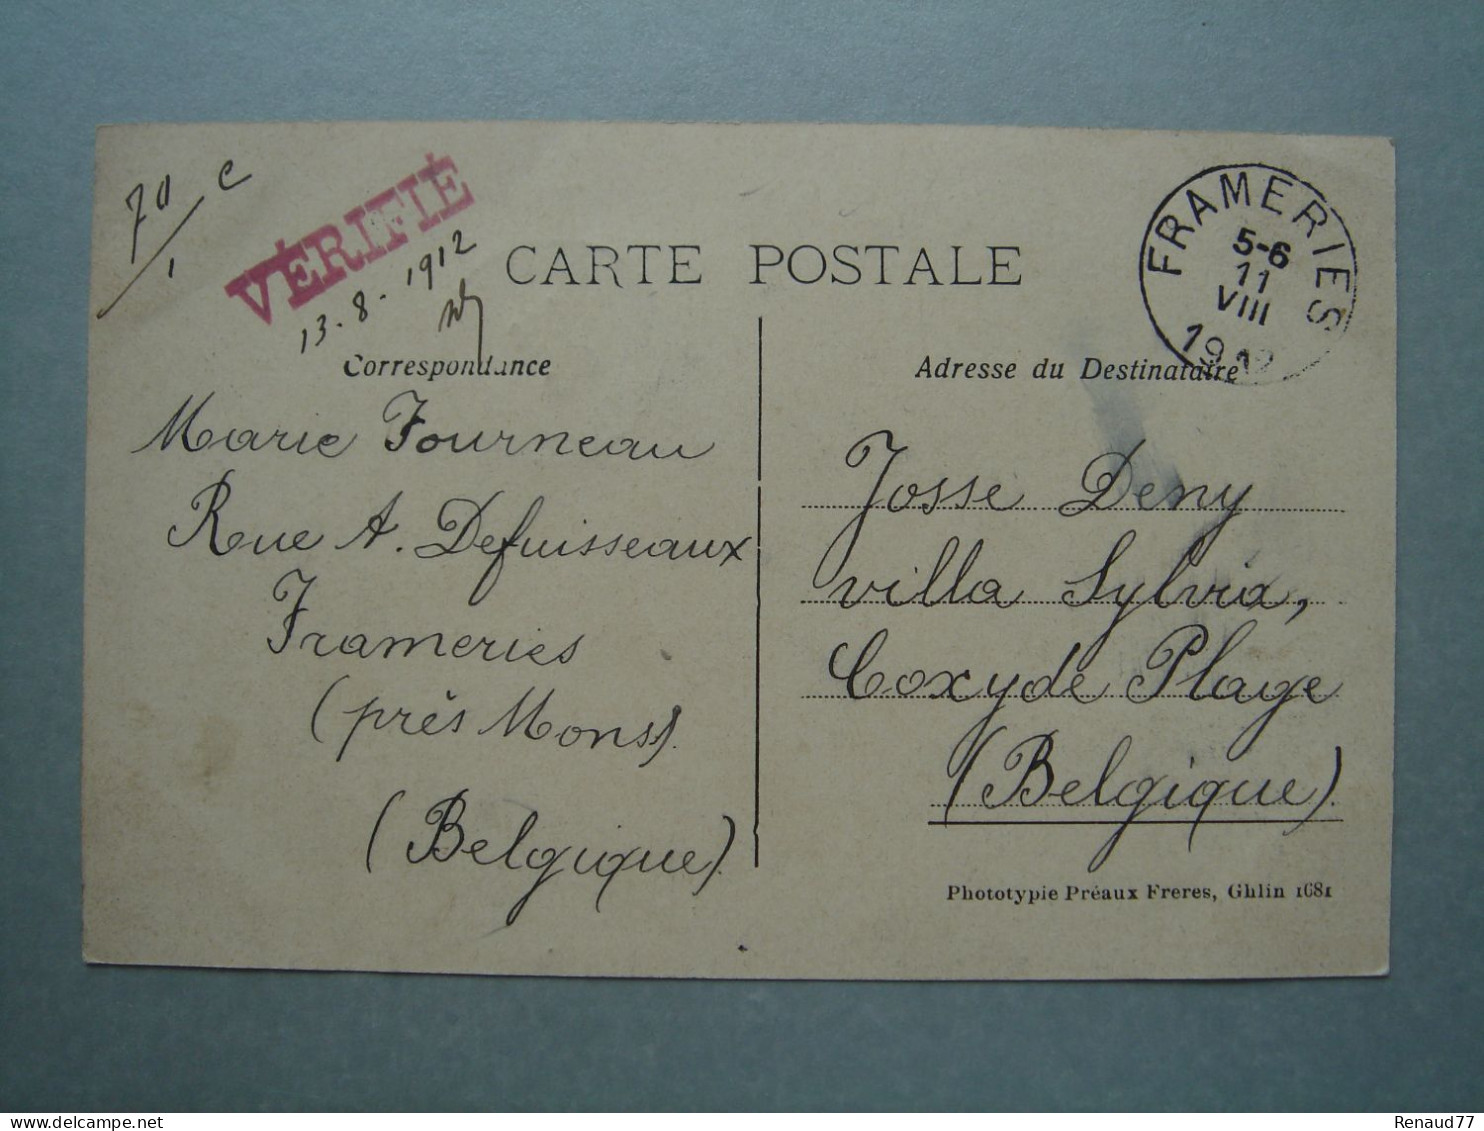 70 C
1
VÉRIFIÉ
13-8-1912
CARTE POSTALE
FRAMERIES
5-6
11
VIII
1912
Correspondance
Adresse du Destinataire
Marie Fourneau
Rue A. Defuisseaux
Frameries
(près Mons).
(Belgique).
Josse Deny
villa Sylvia,
Coxyde Plage
(Belgique).
Phototypie Préaux Freres, Ghlin 1681
Renaud77